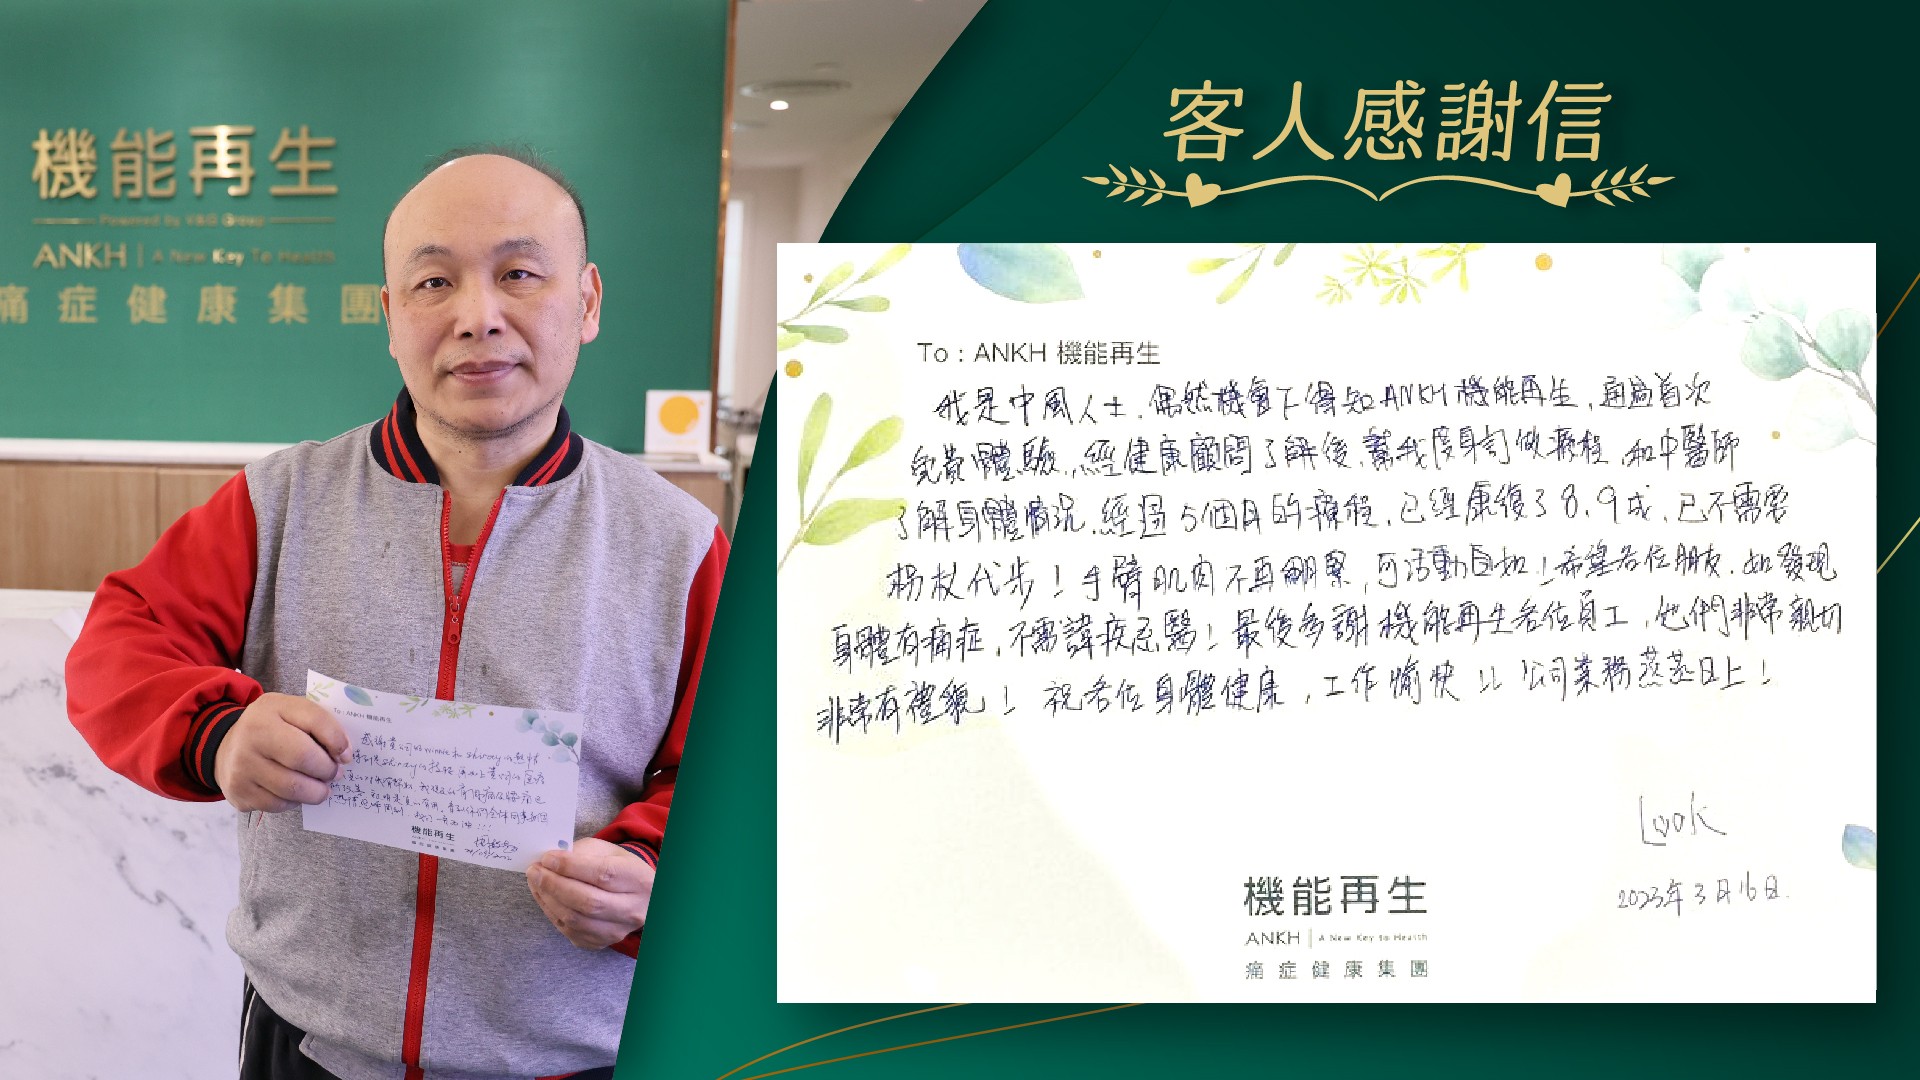 機能再生
Powered by V&G Group
ANKH | A New Key To Health
痛症健康集團
客人感謝信
To : ANKH 機能再生
我是中風人士，偶然機會下得知ANKH機能再生，通過首次
免費體驗，經健康顧問了解後，幫我度身訂做療程，和中醫師
了解身體情況，經過5個月的療程，已經康復了8.9成，已不需要
拐杖代步！手臂肌肉不再繃緊，可活動自如！希望各位朋友，如發現
身體有痛症，不需諱疾忌醫！最後多謝機能再生各位員工，他們非常親切
非常有禮貌！祝各位身體健康，工作愉快！！公司業務蒸蒸日上！
Look
2023年3月16日.
機能再生
ANKH | A New Key to Health
痛症健康集團
To : ANKH 機能再生
機能再生